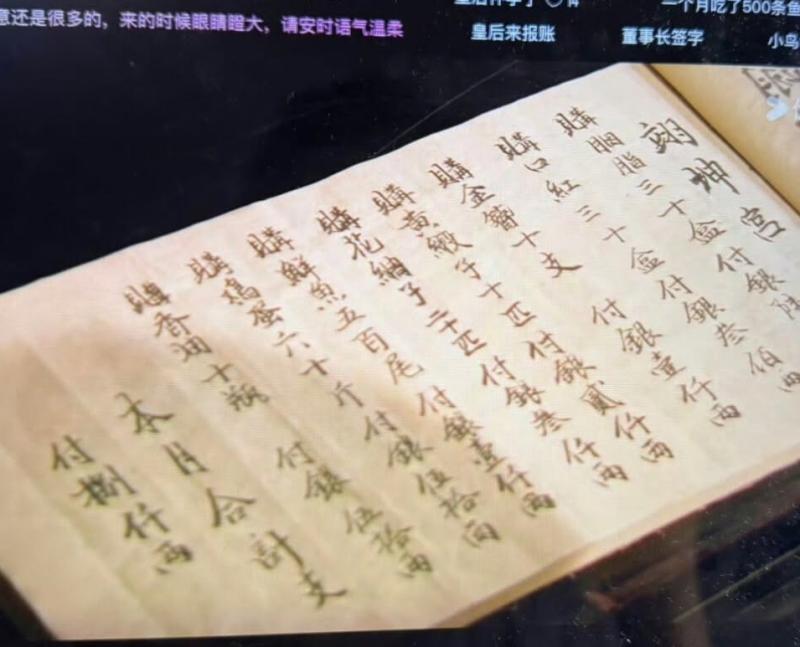 意还是很多的，来的时候眼睛瞪大，请安时语气温柔
个月吃了500条鱼
皇后来报账
董事长签字
小鸟
翊坤宫
購胭脂三十盒付銀陸
購口紅三十盒付銀叁伯兩
購金簪十支付銀壹仟兩
購黄緞子十匹付銀貳仟兩
購花紬子二十匹付銀叁仟兩
購鮮魚五百尾付銀壹仟兩
購鷄蛋六十斤付銀伍拾兩
購香油十瓶付銀伍拾兩
本月合計支
付捌仟兩